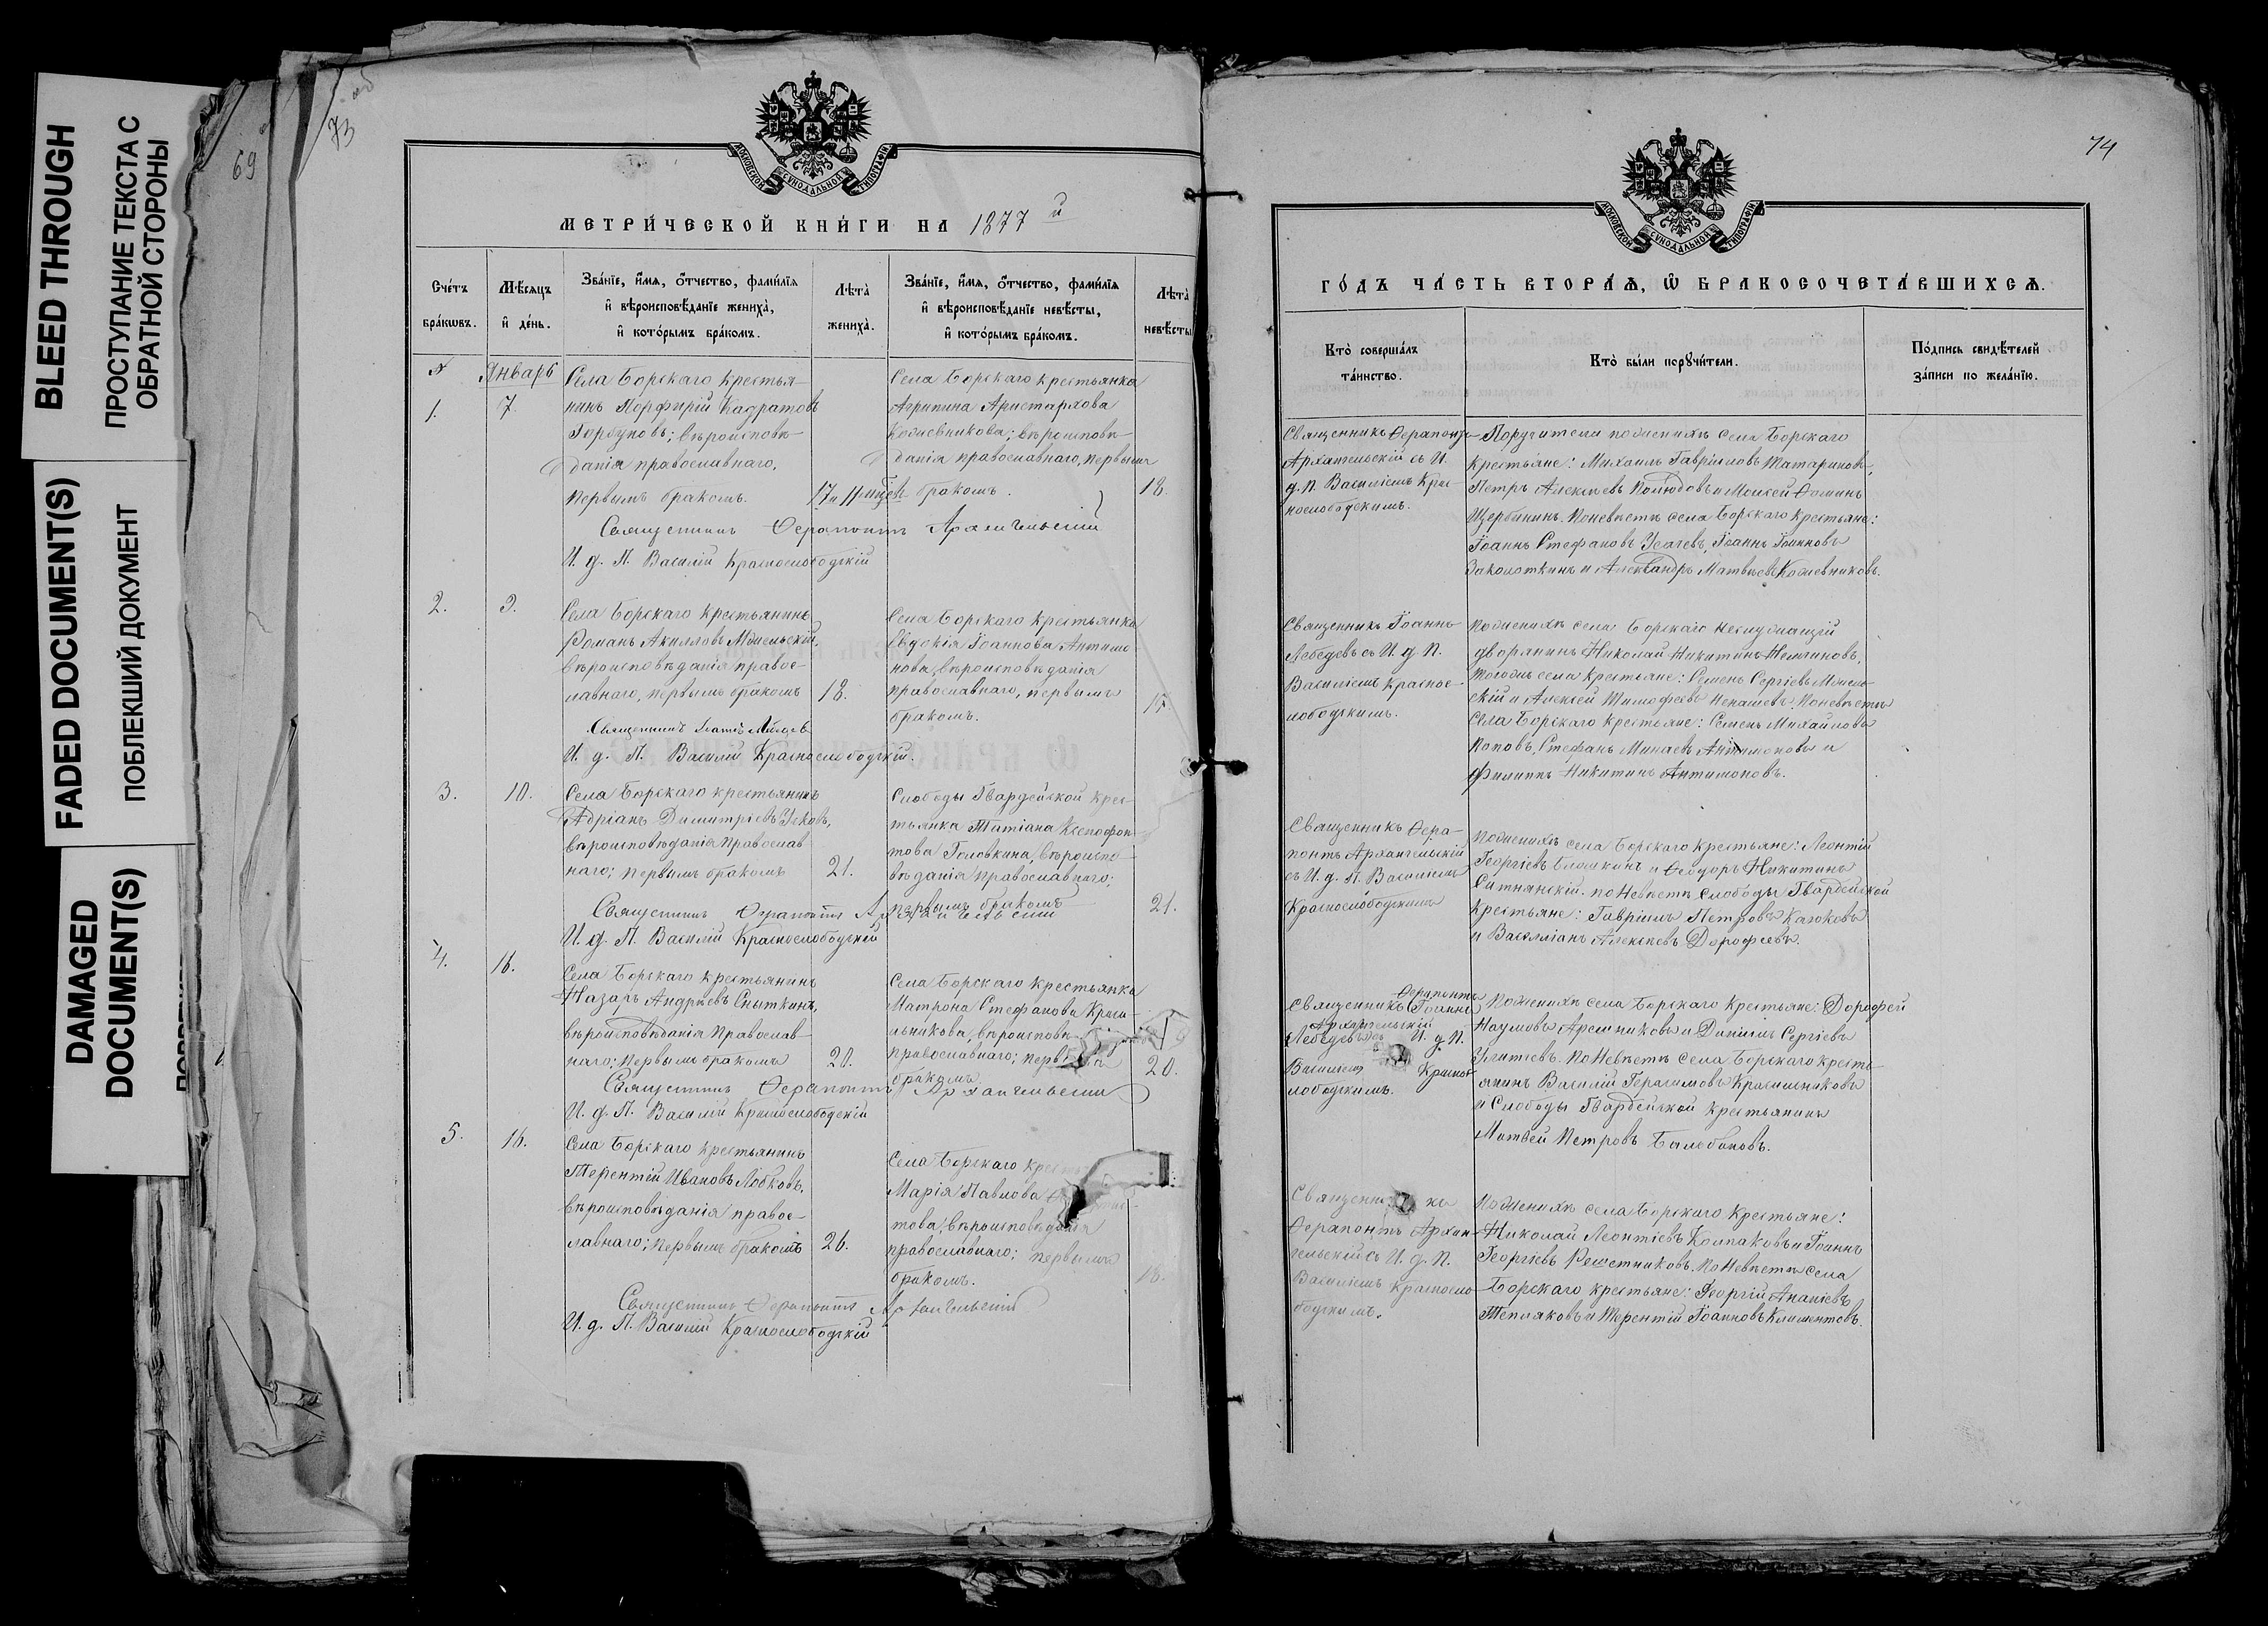 BLEED THROUGH
ПРОСТУПАНИЕ ТЕКСТА С
ОБРАТНОЙ СТОРОНЫ
FADED DOCUMENT(S)
ПОБЛЕКШИЙ ДОКУМЕНТ
DAMAGED
DOCUMENT(S)
69
73
об
МОСКОВСКОЙ СУНОДАЛЬНОЙ ТИПОГРАФІИ
МЕТРИ́ЧЕСКОЙ КНИ́ГИ НА 1877 й
Сче́тъ
бра́кѡвъ.
Мѣ́сяцъ
и҆ де́нь.
Зва́нїе, и҆́мѧ, ѻ҆́тчество, фами́лїѧ
и҆ вѣроисповѣ́данїе жениха̀,
и҆ кото́рымъ бра́комъ.
Лѣта̀
жениха̀.
Зва́нїе, и҆́мѧ, ѻ҆́тчество, фами́лїѧ
и҆ вѣроисповѣ́данїе невѣ́сты,
и҆ кото́рымъ бра́комъ.
Лѣта̀
невѣ́сты
Январь
1. 7.
Села Борскаго крестья-
нинъ Порфирій Кадратовъ
Горбуновъ; вѣроисповѣ-
данія православнаго,
первымъ бракомъ.
17 и 11 мцев
Села Борскаго крестьянка
Агрипина Аристархова
Кожевникова; вѣроисповѣ-
данія православнаго, первымъ
бракомъ.
18.
Священникъ Ѳерапонтъ Архангельскій
И. д. П. Василій Краснослободскій
2. 9.
Села Борскаго крестьянинъ
Романъ Акилловъ Мжельскій,
вѣроисповѣданія правос-
лавнаго, первымъ бракомъ
18.
Села Борскаго крестьянка
Евдокія Іоаннова Антимо
нова, вѣроисповѣданія
православнаго, первымъ
бракомъ.
Священникъ Іоаннъ Лебедевъ
И. д. П. Василій Краснослободскій.
3. 10.
Села Борскаго крестьянинъ
Адріанъ Димитріевъ
вѣроисповѣданія православ
наго; первымъ бракомъ
21.
Слободы Гвардейской крес-
тьянка Татіана Ксенофон
това Головкина, вѣроиспо-
вѣданія православнаго;
первымъ бракомъ
21.
Священникъ Ѳерапонтъ Архангельскій
И. д. П. Василій Краснослободскій
4. 16.
Села Борскаго крестьянинъ
Назаръ Андреевъ Сныткинъ,
вѣроисповѣданія православ-
наго; первымъ бракомъ
20.
Села Борскаго крестьянка
Матрона Стефанова Краси-
льникова, вѣроисповѣ
православнаго; перв
бракомъ
20.
Священникъ Ѳерапонтъ Архангельскій
И. д. П. Василій Краснослободскій
5. 16.
Села Борскаго крестьянинъ
Терентій Ивановъ Лобковъ,
вѣроисповѣданія правос-
лавнаго; первымъ бракомъ
26.
Села Борскаго крест
Марія Павлова
това, вѣроисповѣданія
православнаго; первымъ
бракомъ.
18.
Священникъ Ѳерапонтъ Архангельскій
И. д. П. Василій Краснослободскій
74
МОСКОВСКОЙ СУНОДАЛЬНОЙ ТИПОГРАФІИ
ГО́ДЪ ЧА́СТЬ ВТОРА́Ѧ, Ѡ҆ БРАКОСОЧЕТА́ВШИХСѦ.
Кто̀ соверша́лъ
та́инство.
Кто̀ бы́ли порꙋчи́тели.
По́дпись свидѣ́телей
за́писи по жела́нїю.
Священникъ Ѳерапонтъ
Архангельскій съ И.
д. П. Василіемъ Крас-
нослободскимъ.
Поручители по женихѣ села Борскаго
крестьяне: Михаилъ Гавріиловъ Татариновъ,
Петръ Алексѣевъ Полюдовъ и Моисей Ѳоминъ
Щербининъ. По невѣстѣ села Борскаго крестьяне:
Іоаннъ Стефановъ Усачевъ, Іоаннъ Іоанновъ
Заколоткинъ и Александръ Матвѣевъ Кожевниковъ.
Священникъ Іоаннъ
Лебедевъ съ И. д. П.
Василіемъ Краснос-
лободскимъ.
По женихѣ села Борскаго неслужащій
дворянинъ Николай Никитинъ
того же села крестьяне: Семенъ Сергѣевъ Мжель-
скій и Алексѣй Тимофеевъ Ненашевъ. По невѣстѣ
Села Борскаго крестьяне: Семенъ Михайловъ
Поповъ, Стефанъ Минаевъ Антимоновъ и
Филиппъ Никитинъ Антимоновъ.
Священникъ Ѳера-
понтъ Архангельскій
съ И. д. П. Василіемъ
Краснослободскимъ
По женихѣ села Борскаго крестьяне: Леонтій
Георгіевъ и Ѳеодоръ Никитинъ
Ситнянскій. по невѣстѣ Слободы Гвардейской
крестьяне: Гавріилъ Петровъ Казюковъ
и Вассіанъ Алексѣевъ Дорофеевъ.
Ѳерапонтъ
Священникъ Іоаннъ
Архангельскій
Лебедевъ съ И. д. П.
Василіемъ Краснос
лободскимъ.
По женихѣ села Борскаго крестьяне: Дорофей
Наумовъ и Даниилъ Сергіевъ
По невѣстѣ села Борскаго кресть-
янинъ Василій Герасимовъ Красильниковъ
и Слободы Гвардейской крестьянинъ
Матвей Петровъ Балобановъ.
Священникъ
Ѳерапонтъ Архан-
гельскій съ И. д. П.
Василіемъ Красносло
бодскимъ.
По женихѣ села Борскаго крестьяне:
Николай Леонтіевъ Колпаковъ и Іоаннъ
Георгіевъ Решетниковъ. По невѣстѣ села
Борскаго крестьяне: Георгій Ананіевъ
Тепляковъ и Терентій Іоанновъ Климентовъ.